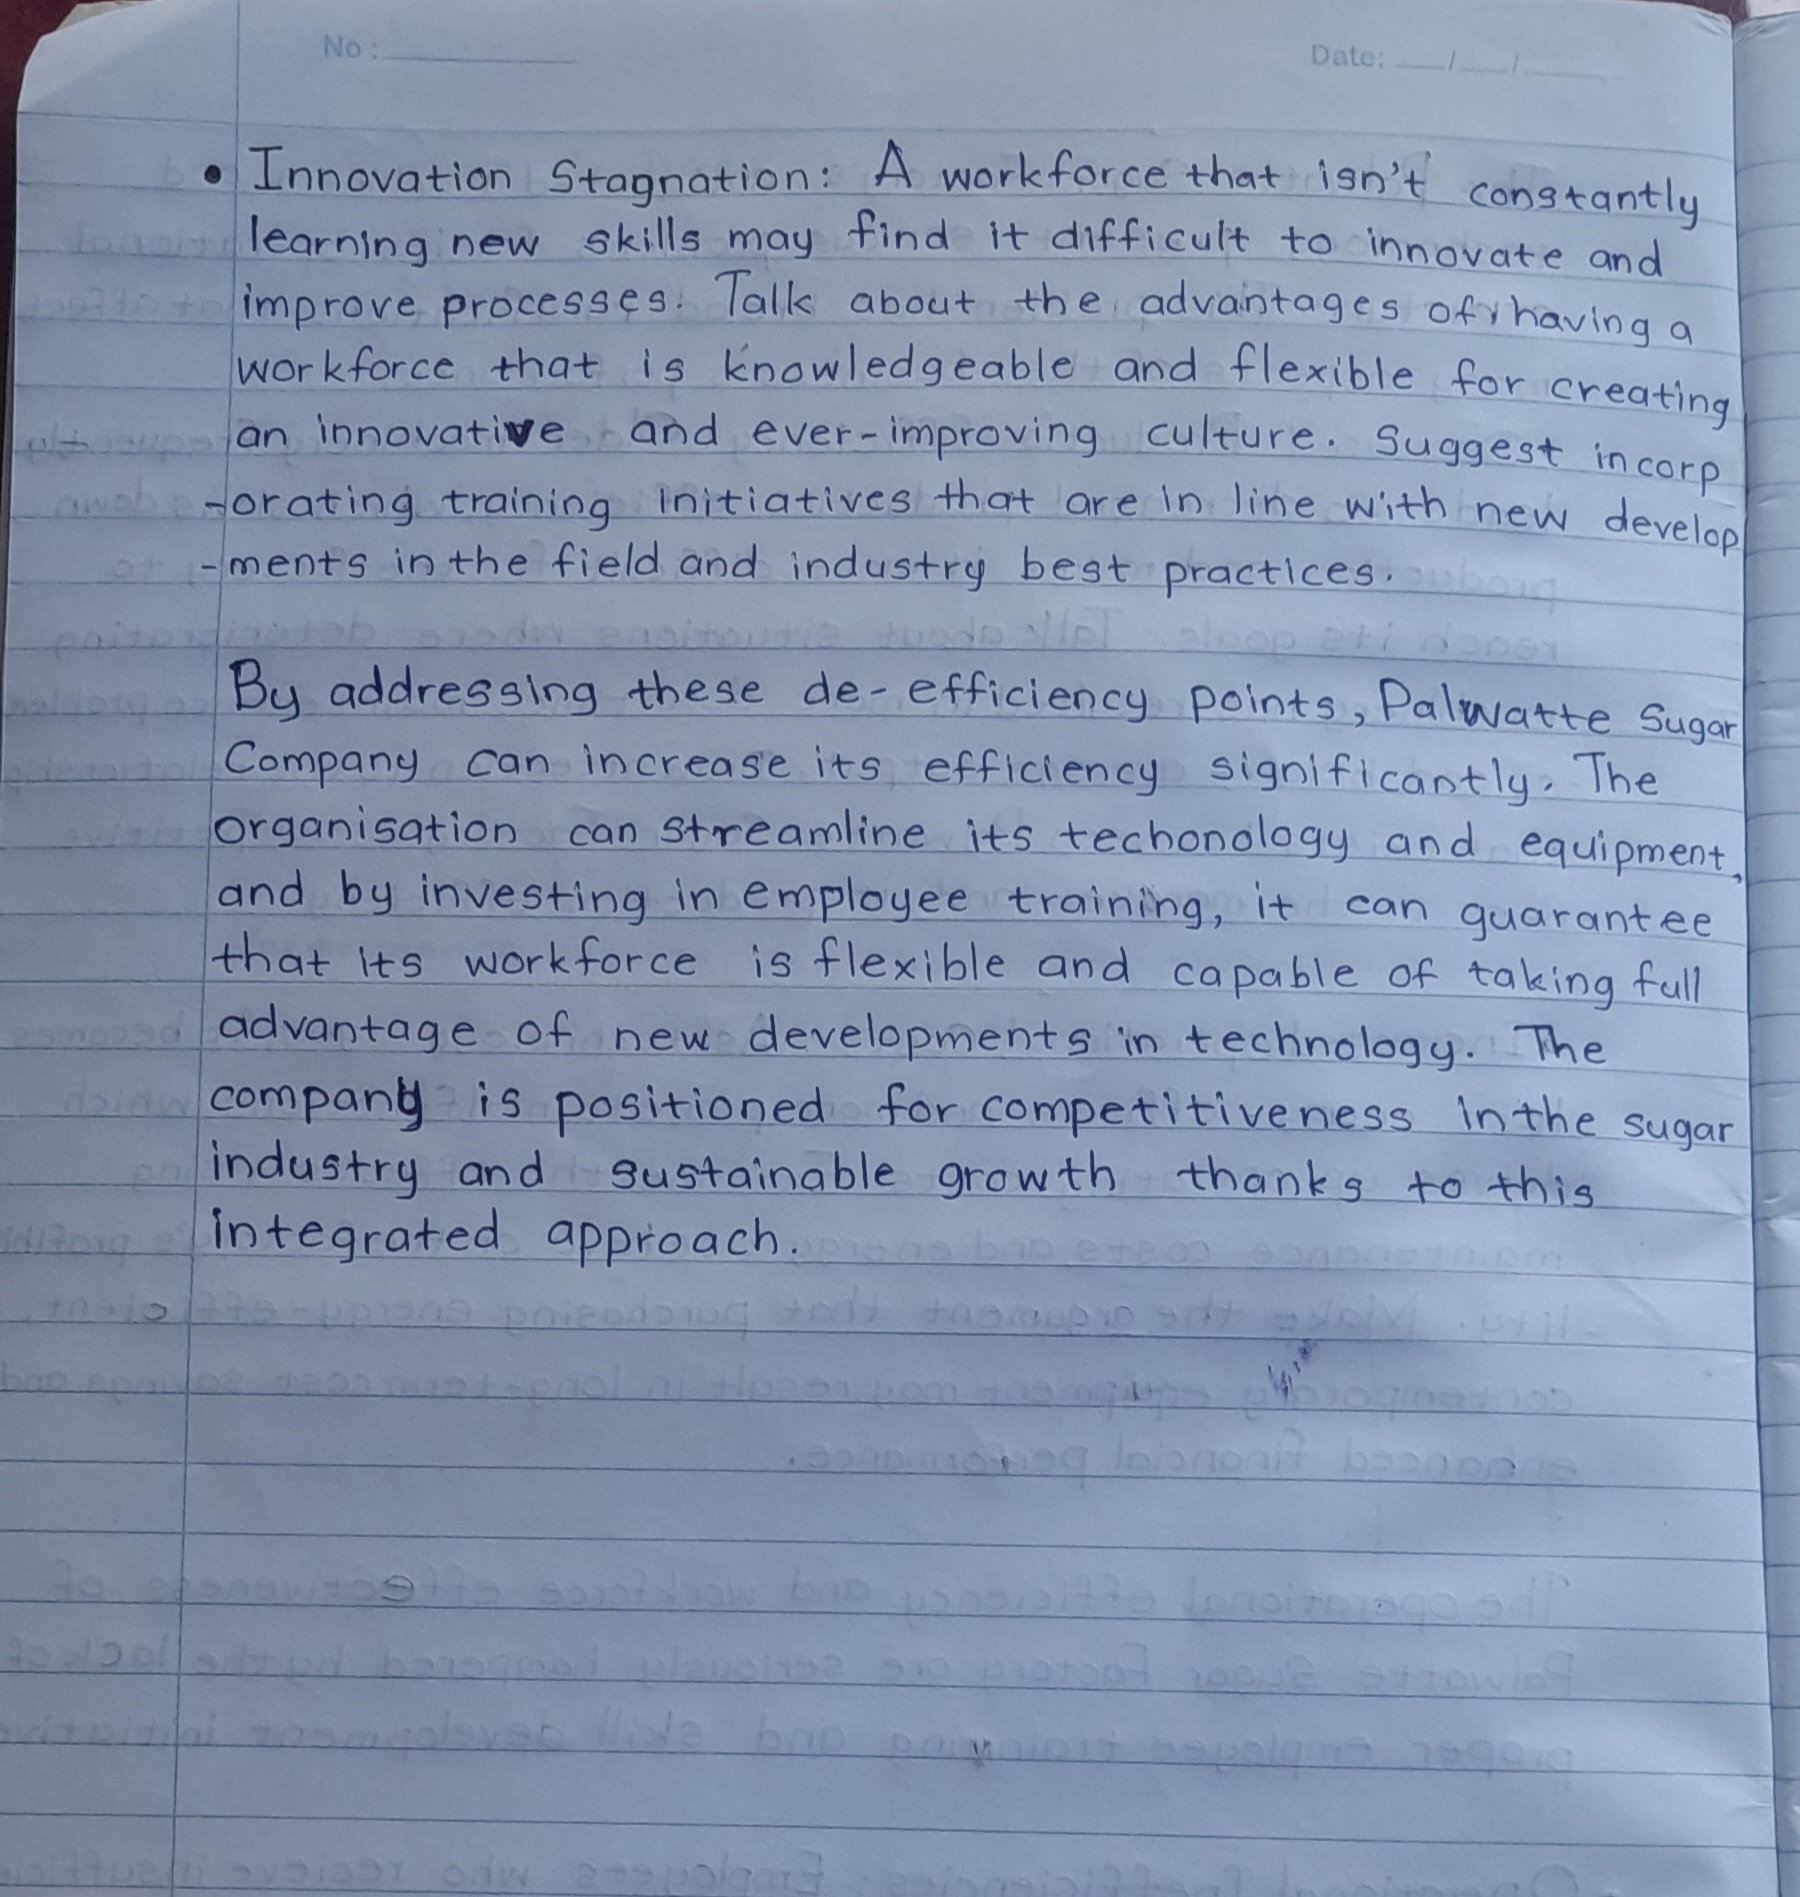 No: Date: __/__/__
• Innovation Stagnation: A workforce that isn't constantly
learning new skills may find it difficult to innovate and
improve processes. Talk about the advantages of having a
workforce that is knowledgeable and flexible for creating
an innovative and ever-improving culture. Suggest incorp
-orating training initiatives that are in line with new develop
-ments in the field and industry best practices.
By addressing these de-efficiency points, Palwatte Sugar
Company can increase its efficiency significantly. The
organisation can streamline its techonology and equipment,
and by investing in employee training, it can guarantee
that its workforce is flexible and capable of taking full
advantage of new developments in technology. The
company is positioned for competitiveness in the sugar
industry and sustainable growth thanks to this
integrated approach.